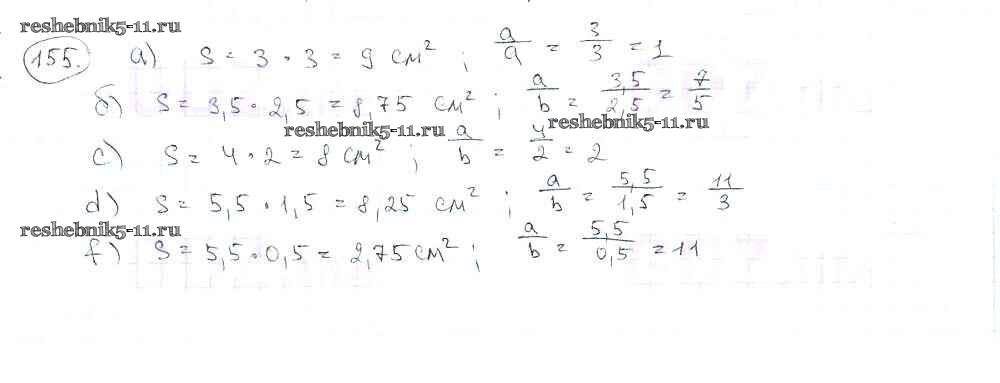 reshebnik5-11.ru
155. а) S = 3 · 3 = 9 см² ; a/a = 3/3 = 1
б) S = 3,5 · 2,5 = 8,75 см² ; a/b = 3,5/2,5 = 7/5
reshebnik5-11.ru reshebnik5-11.ru
c) S = 4 · 2 = 8 см² ; a/b = 4/2 = 2
d) S = 5,5 · 1,5 = 8,25 см² ; a/b = 5,5/1,5 = 11/3
reshebnik5-11.ru
f) S = 5,5 · 0,5 = 2,75 см² ; a/b = 5,5/0,5 = 11